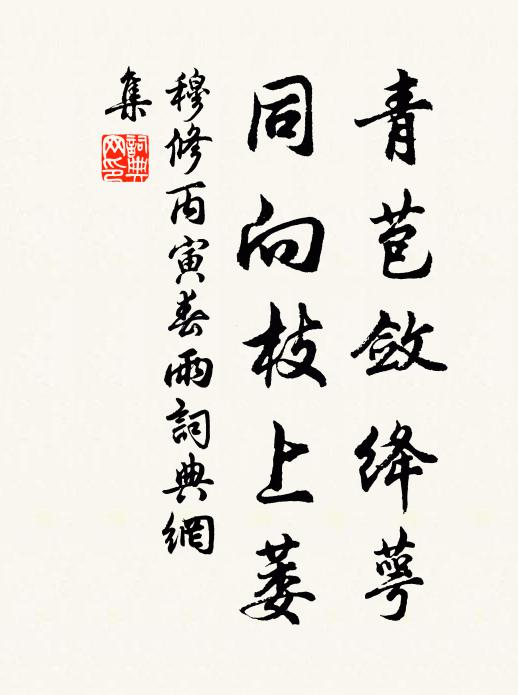 青苞斂绛萼
同向枝上萎
穆修丙寅春雨詞典網
集
詞典网印